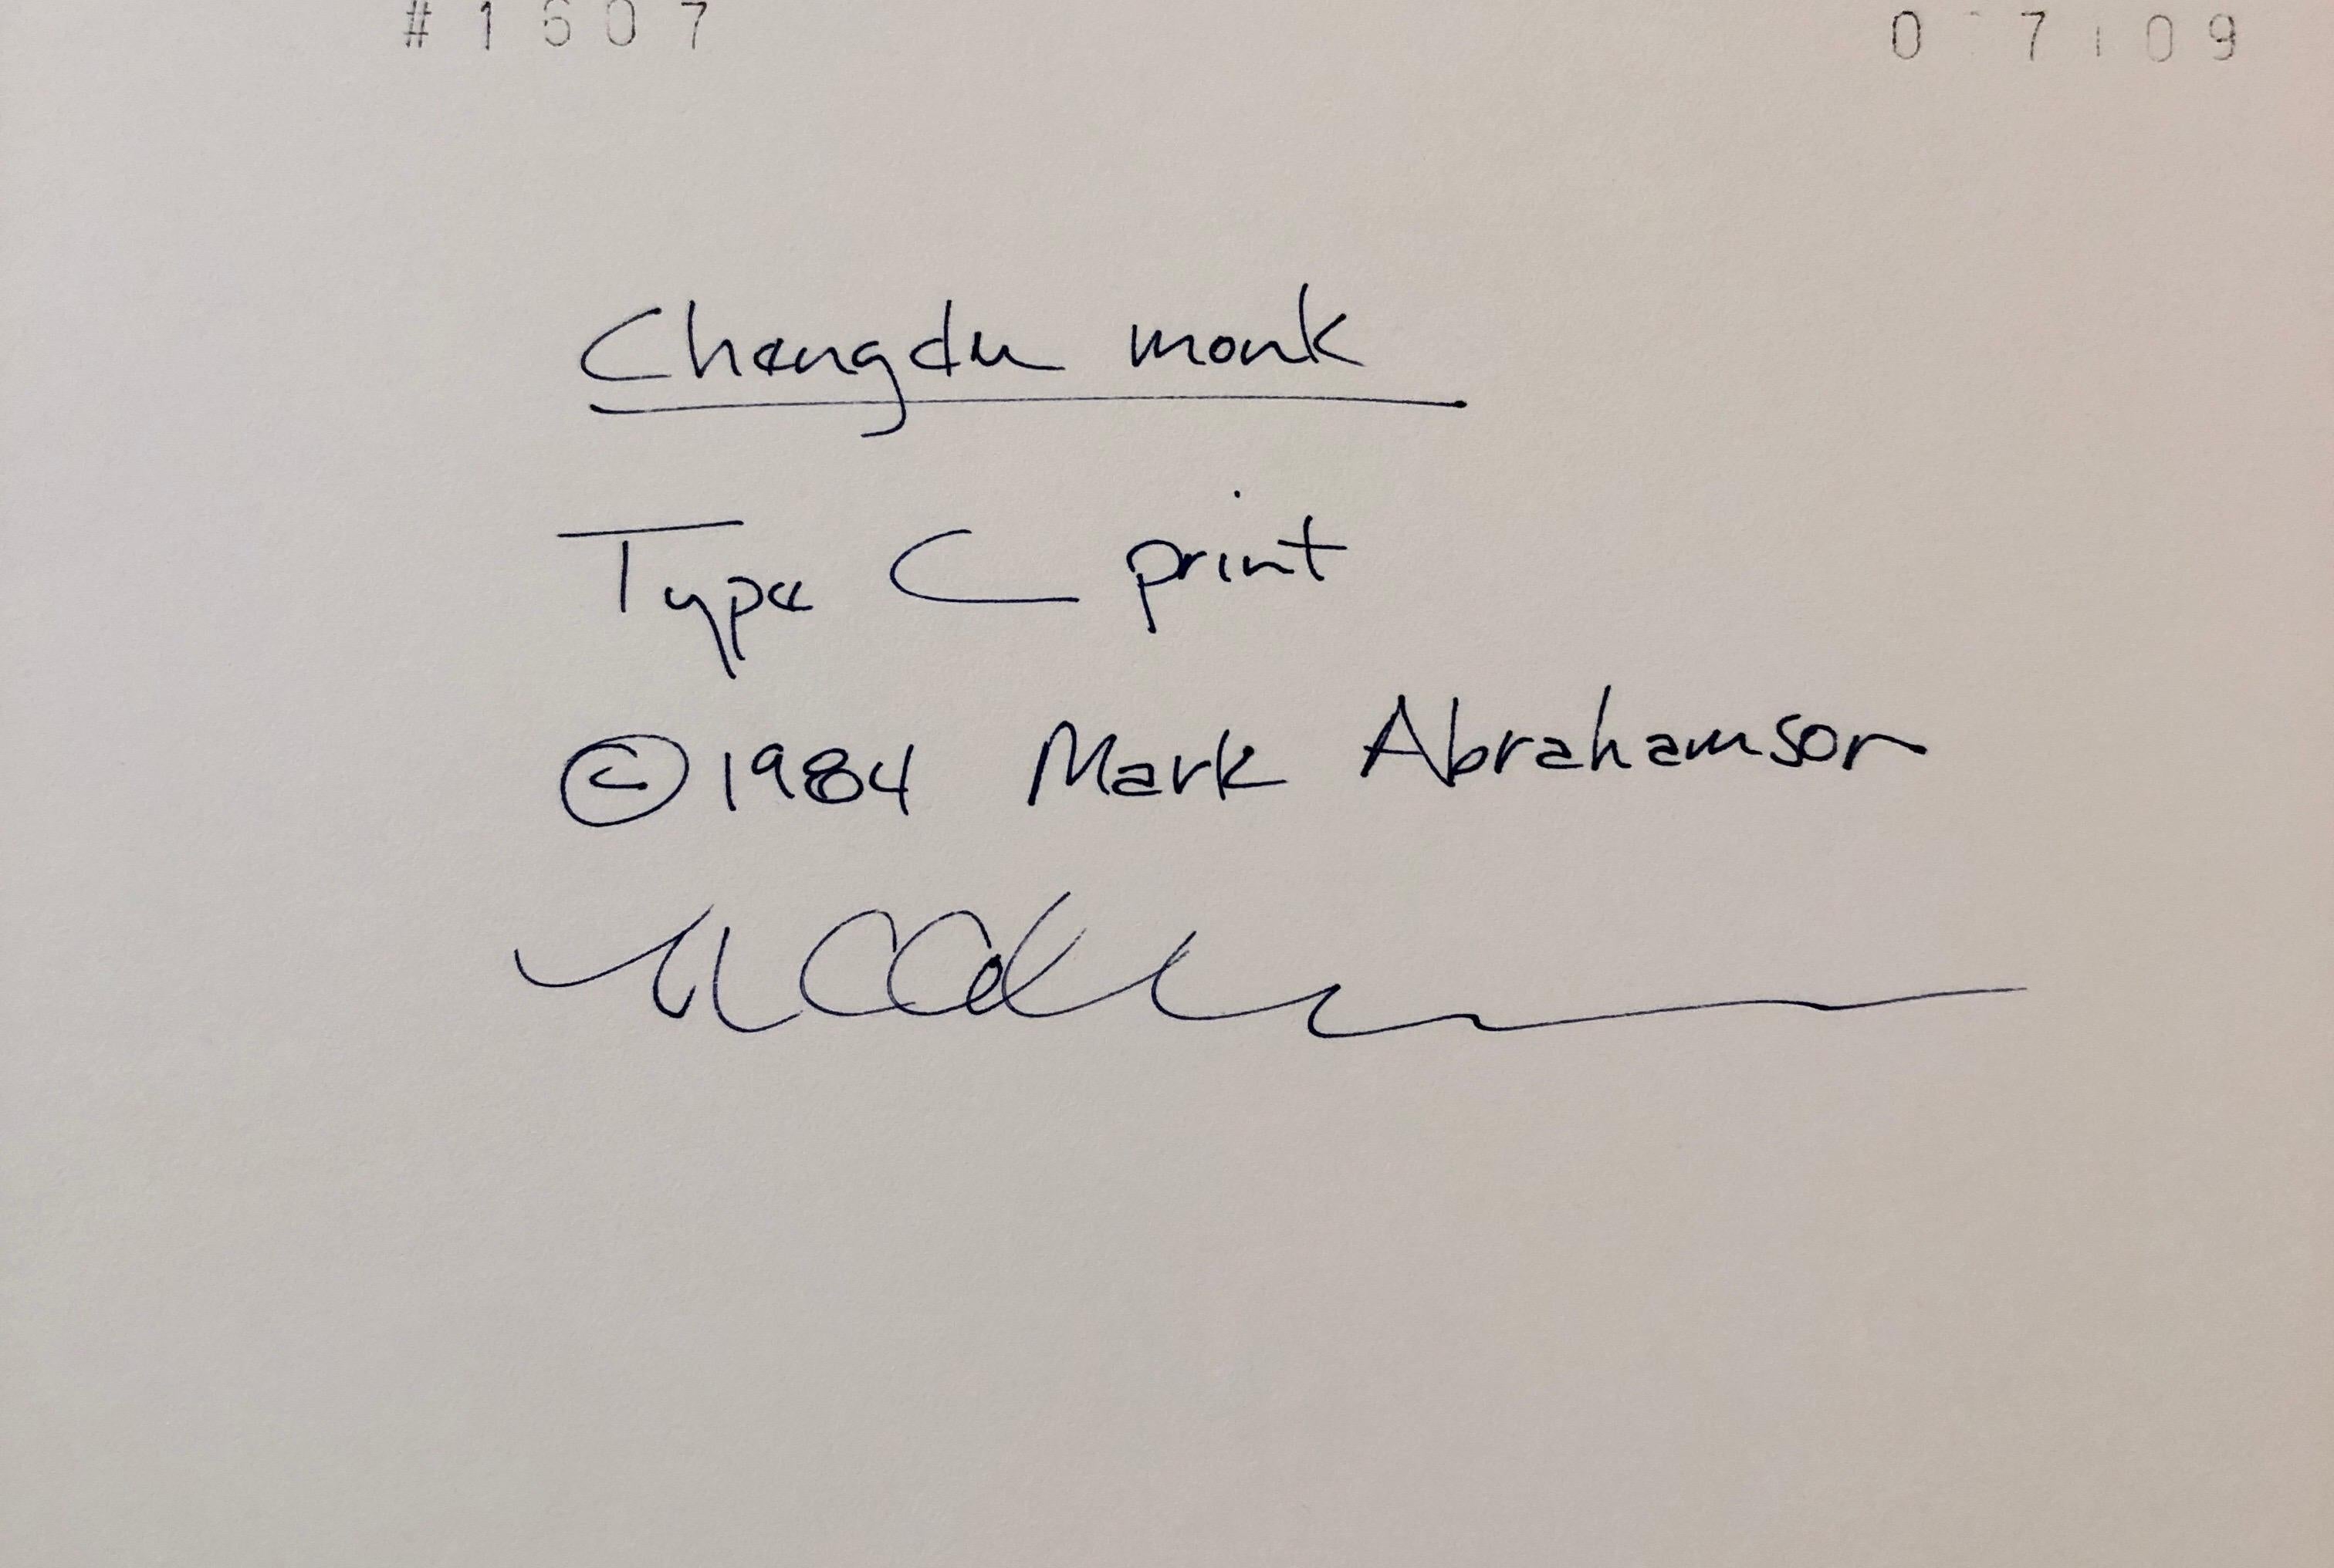 #1607
Chengdu monk
Type C print
© 1984 Mark Abrahamson